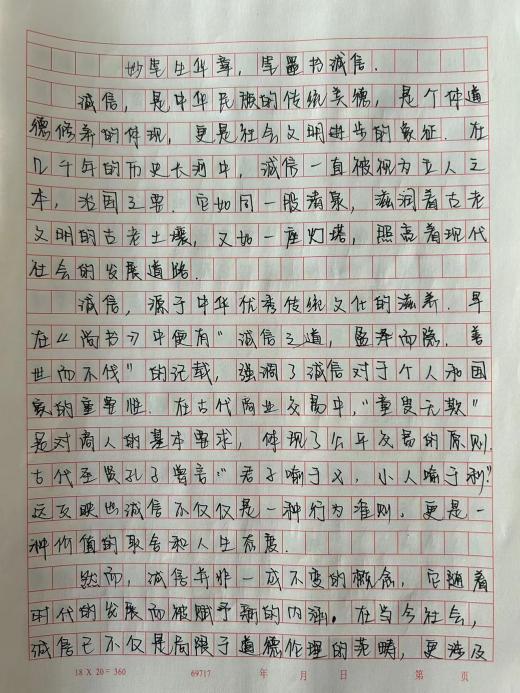 妙笔生华章，笔墨书诚信.
诚信，是中华民族的传统美德，是个体道
德修养的体现，更是社会文明进步的象征.在
几千年的历史长河中，诚信一直被视为立人之
本，治国之要.它如同一股清泉，滋润着古老
文明的古老土壤，又如一座灯塔，照亮着现代
社会的发展道路.
诚信，源于中华优秀传统文化的滋养.早
在《尚书》中便有“诚信之道，盈泽而隐.善
世而不伐”的记载，强调了诚信对于个人和国
家的重要性.在古代商业交易中，“童叟无欺”
是对商人的基本要求，体现了公平交易的原则.
古代圣贤孔子曾言：“君子喻于义，小人喻于利”
这反映出诚信不仅仅是一种行为准则，更是一
种价值的取舍和人生态度.
然而，诚信并非一成不变的概念，它随着
时代的发展而被赋予新的内涵.在当今社会，
诚信已不仅是局限于道德伦理的范畴，更涉及
18 X 20 = 360 69717 年 月 日 第 页